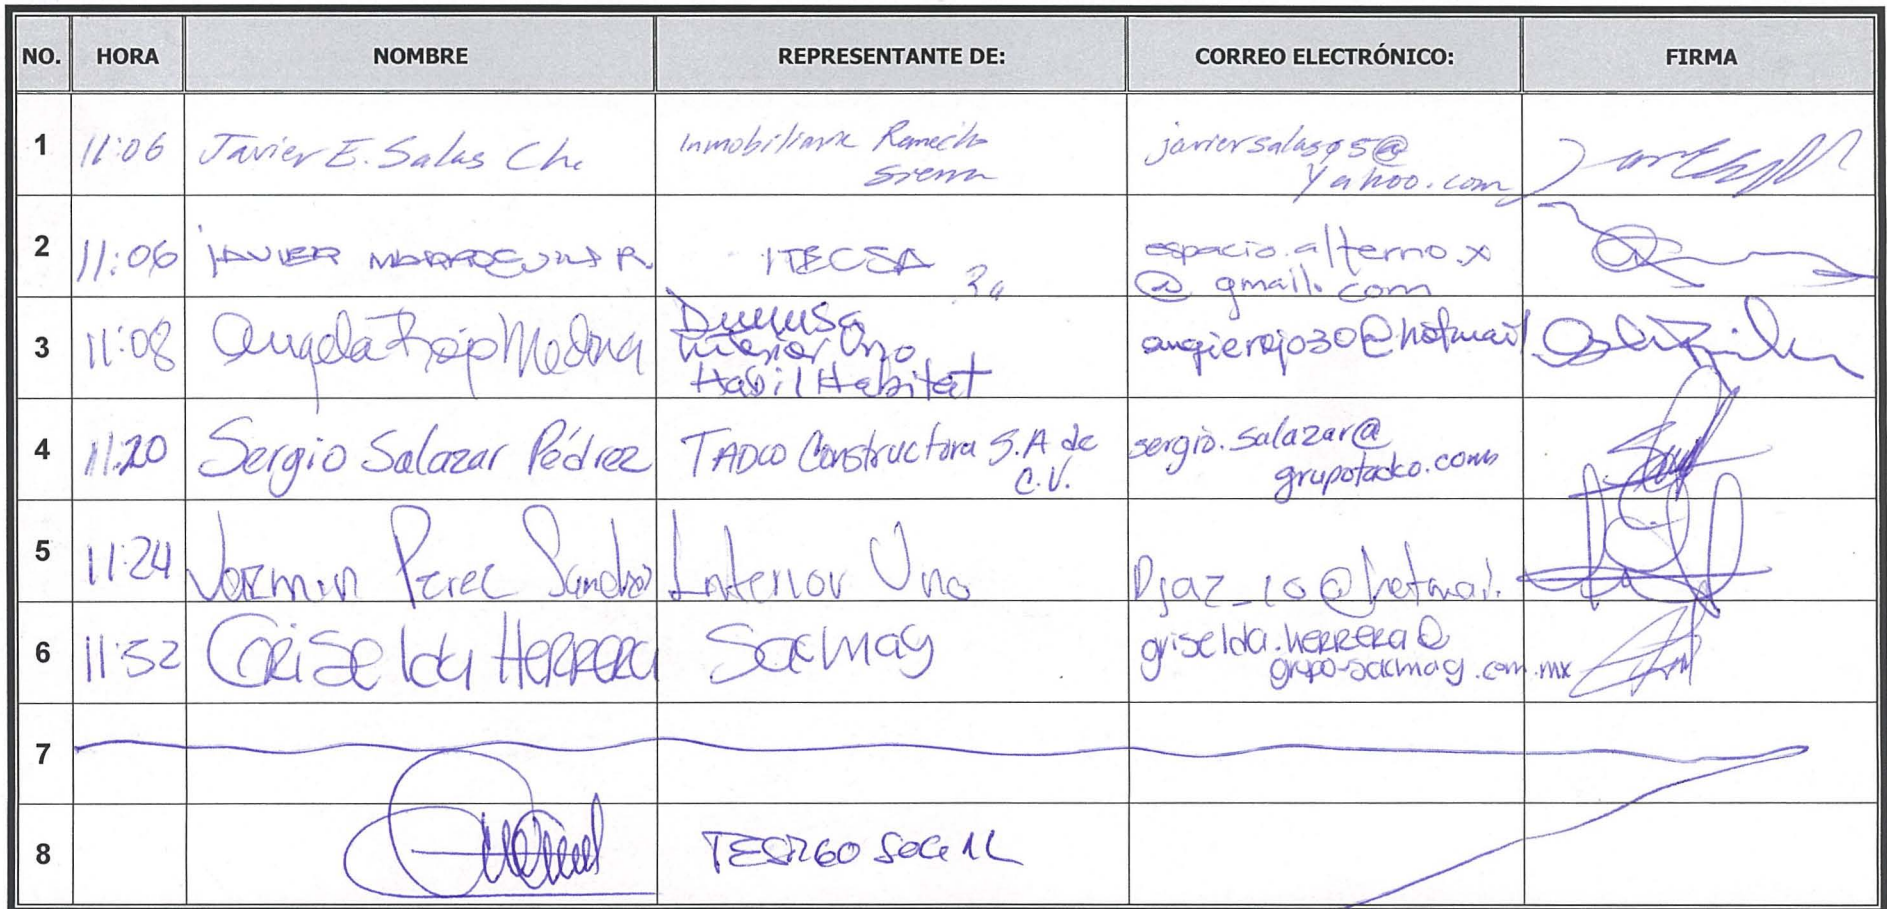 NO. HORA NOMBRE REPRESENTANTE DE: CORREO ELECTRÓNICO: FIRMA
1 11:06 Javier E. Salas Ch. Inmobiliaria javiersalas95@
Yahoo.com
2 11:06 JAVIER R. ITECSA espacio.alterno.x
@gmail.com
3 11:08 Angela Rojo Medina angierojo30@hotmail
Interior Uno
Habil Habitat
4 11:20 Sergio Salazar Pédrez TADCO Constructora S.A de sergio.salazar@
C.V. grupotadco.com
5 11:24 Jazmin Perez Interior Uno Djaz_10@hotmail.
6 11:32 Griselda Herrera Sacmag griselda.herrera@
grupo-sacmag.com.mx
7
8 TESTIGO SOCIAL